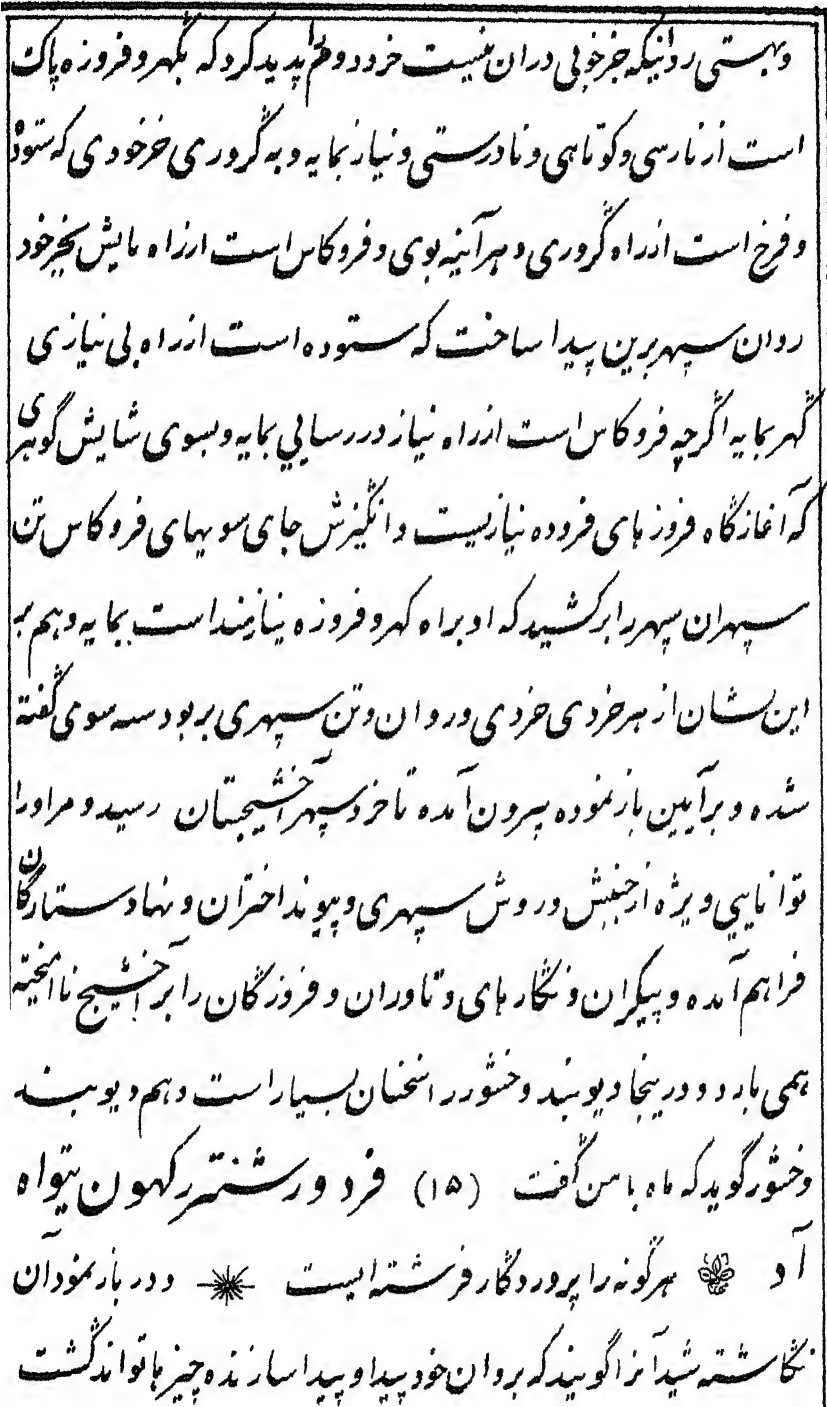 وبهستی روانیکه جز خوبی دران نیست خرد دوم را پدید کرد که بگهر و فروزه پاک
است از نارسی و کوتاهی و نادرستی و نیاز بمایه و به گروری خرخودی که ستوده
و فرخ است از راه گروری و هر آینه بوی و فروکاس است از راه مایش بخیر خود
روان سپهر برین پیدا ساخت که ستوده است از راه بی نیازی
گهر بمایه اگرچه فروکاس است از راه نیاز در رسایی بمایه و بسوی شایش گوهری
که آغازگاه فروزهای فروده نیازیست و انگیزش جای سویهای فروکاس تن
سپهران سپهر را برکشید که او براه گهر و فروزه نیازمند است بمایه و هم بر
این نشان از هر خردی خردی و روان و تن سپهری بر بود سه سوی گفته
شده و بر آیین باز نموده بیرون آمده تا خرد سپهر آخشیجستان رسید و مر اورا
توانایی ویژه از جنبش و روش سپهری و پیوند اختران و نهاد ستارگان
فراهم آمده و پیکران و نگارهای و تاوران و فروزگان را بر آخشیج ناآمیخته
همی بارد و درینجا دیوبند وخشور را سخنان بسیار است و هم دیوبند
وخشور گوید که ماه با من گفت (۱۵) فرد ورشنتر رکهون یتواه
آد هرگونه را پروردگار فرشته ایست و در باز نمود آن
نگاشته شیدآنرا گویند که بروان خود پیدا و پیدا سازنده چیزها تواند گشت